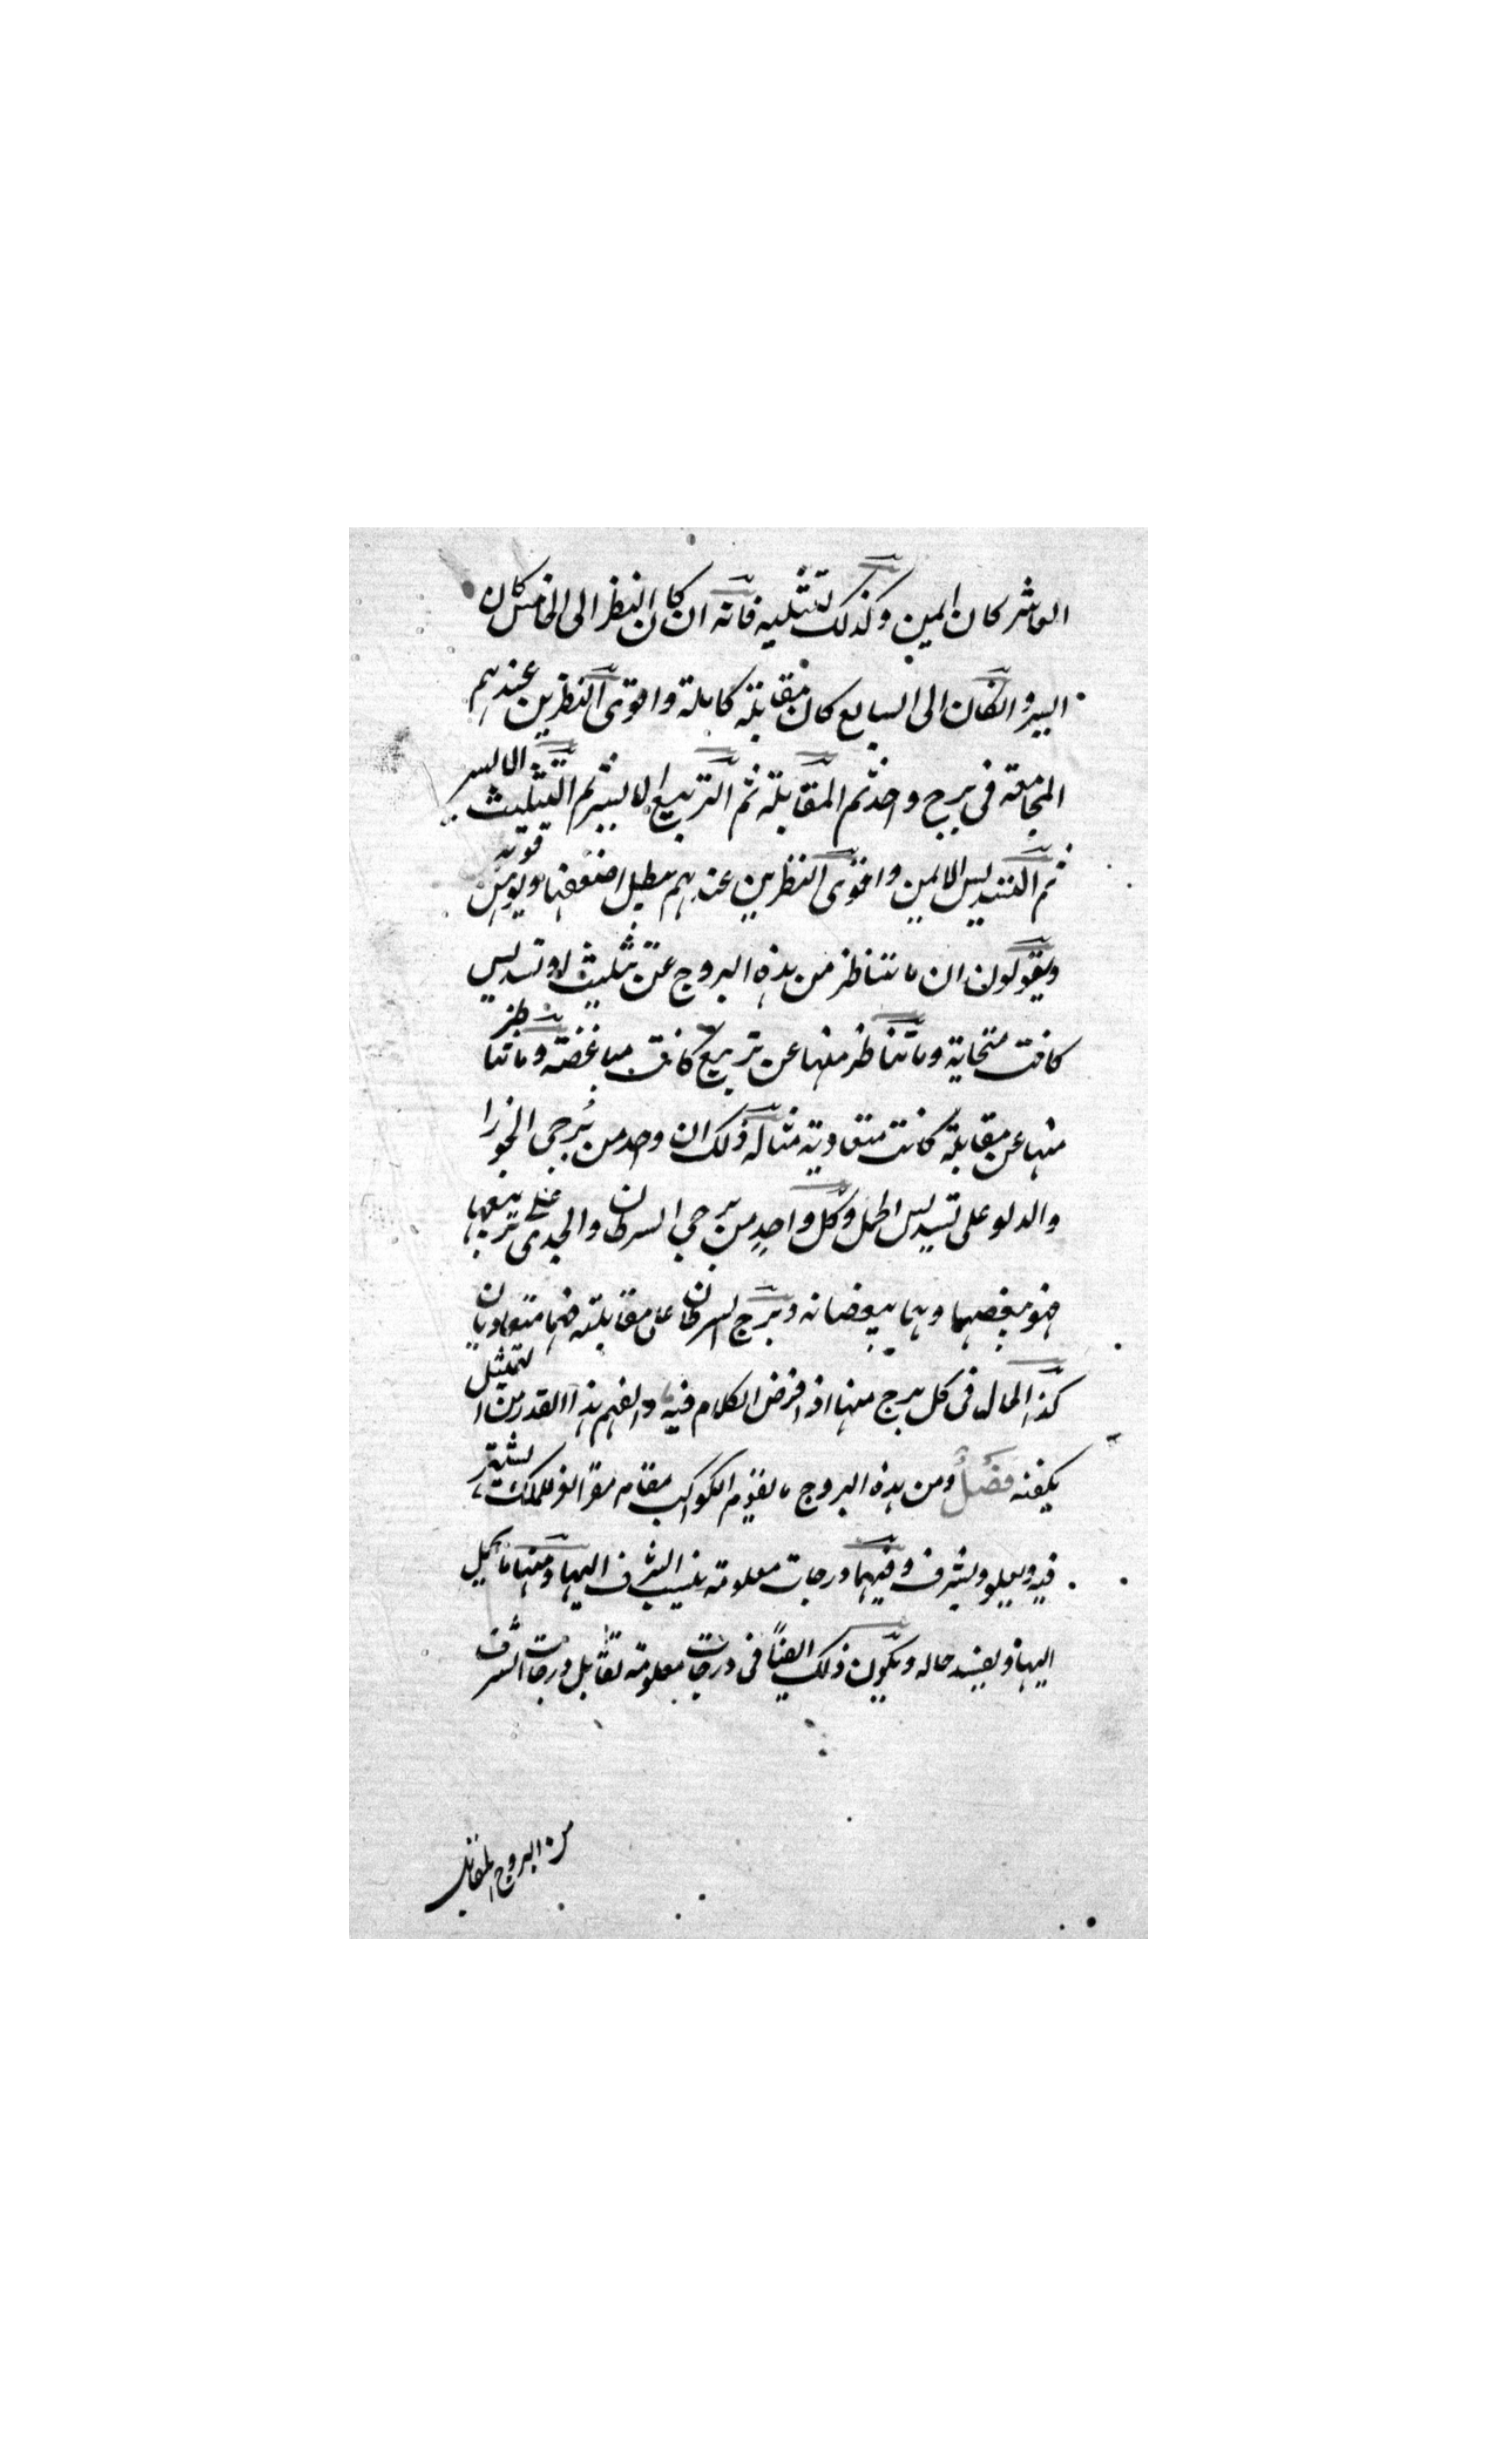 العاشر كان ايمن وكذلك تثليثه فانه ان كان النظر الى الخامس كان
ايسر وان كان الى السابع كان مقابلة كاملة واقوى النظرين عندهم
المجامعة فى برج واحد ثم المقابلة ثم التربيع الايسر ثم التثليث الايسر
ثم التسديس الايمن واقوى النظرين عندهم يبطل اضعفهما ويوهن قوته
ويقولون ان ما تناظر من هذه البروج عن تثليث او تسديس
كانت متحابة وما تناظر منها عن تربيع كانت متباغضة وما تناظر
منها عن مقابلة كانت متعادية مثاله ذلك ان واحد من برجى الجوزا
والدلو على تسديس الحمل وكل واحد من برجى السرطان والجدى على تربيعها
فهو يبغضهما وهما يبغضانه وبرج السرطان على مقابلته فهما متعاديان
كذا الحال فى كل برج منها اذا فرض الكلام فيه والفهم هذا القدر من التمثيل
يكفنه فصل ومن هذه البروج ما يقوم الكواكب مقام مقر العز للملك يشتهر
فيه ويعلو ويشرف وفيهما درجات معلومة ينسب الشرف اليها ومنها ما يحيل
اليها ويفسد حاله ويكون ذلك ايضا فى درجات معلومة تقابل درجات الشرف
من البروج المقابلة